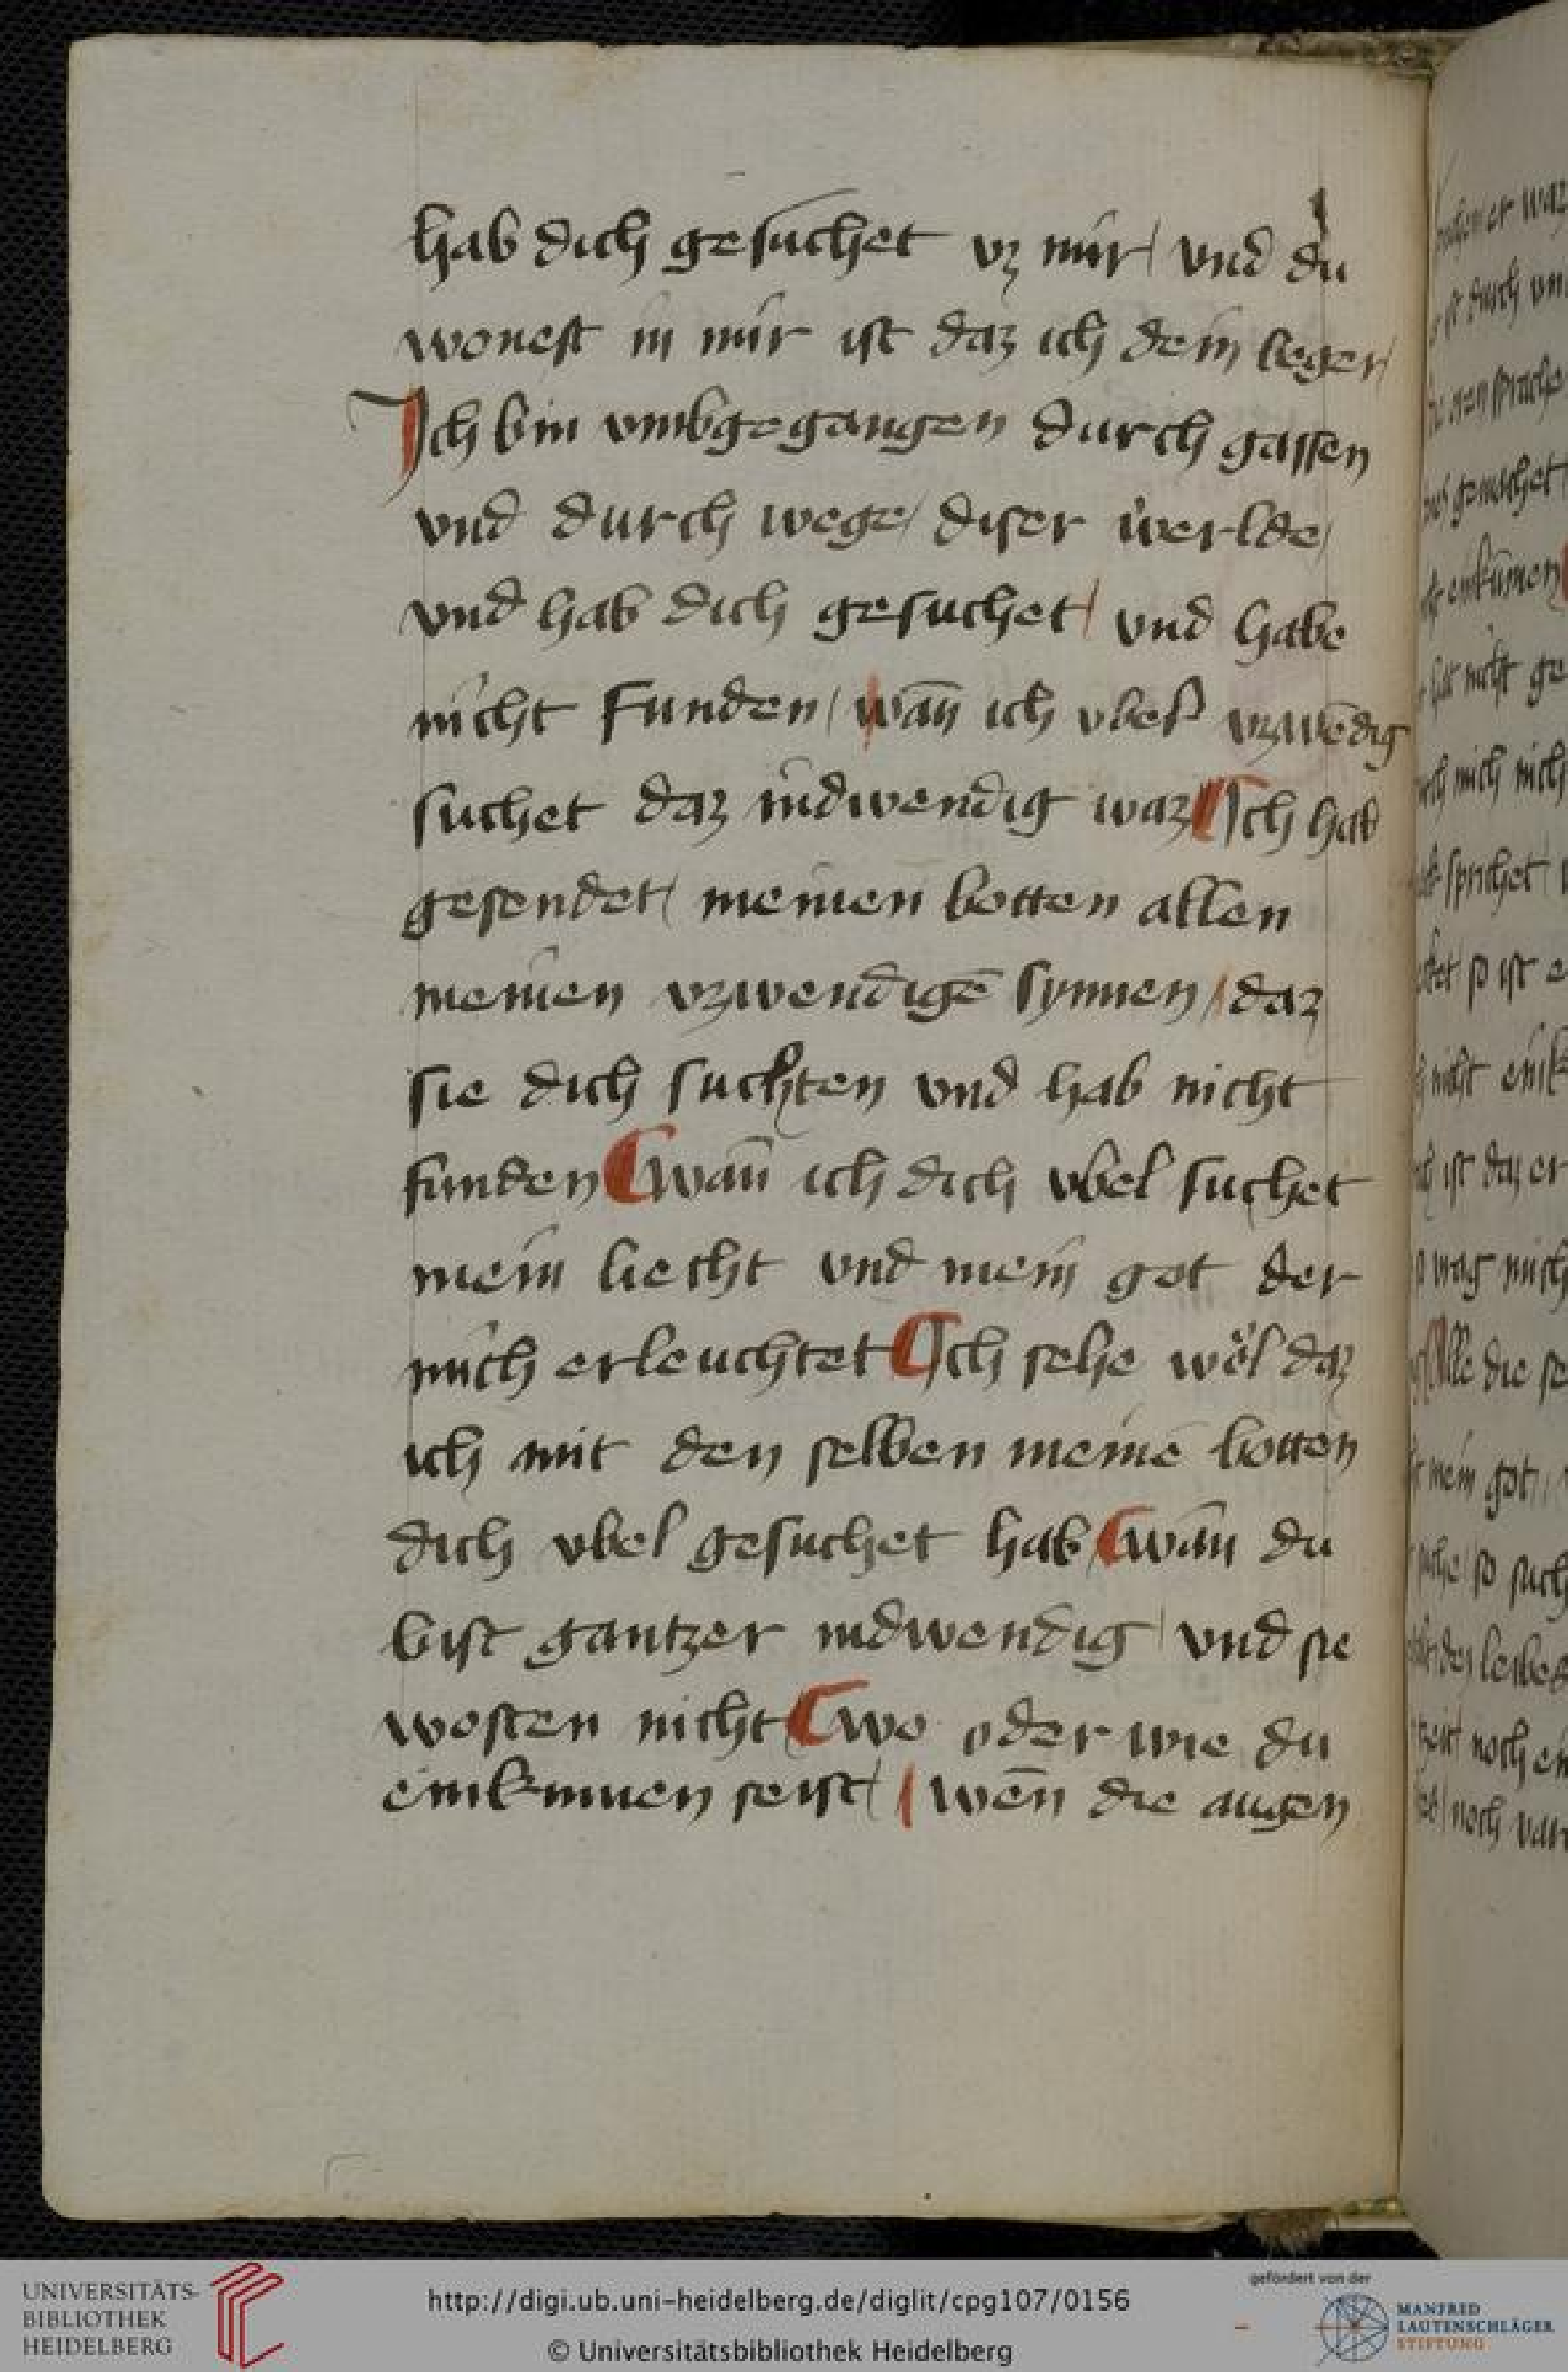 hab dich gesuchet vz mir / vnd du
wonest in mir ist daz ich dein leger /
Ich bin vmbgegangen durch gassen
vnd durch wege / diser werlde /
vnd hab dich gesuchet / vnd habe
nicht funden / wañ ich vbel vzwēdig
suchet daz indwendig waz ¶ Ich hab
gesendet / meinen botten allen
meinen vzwendigē synnen / daz
sie dich suchten vnd hab nicht
funden ¶ wañ ich dich vbel suchet
mein liecht vnd mein got der
mich erleuchtet ¶ Ich sehe wol daz
ich mit den selben meinē botten
dich vbel gesuchet hab / ¶ wañ du
bist gantzer indwendig / vnd sie
westen nicht ¶ wo oder wie du
einkumen seist / / wēn die augen
UNIVERSITÄTS-
BIBLIOTHEK
HEIDELBERG
http://digi.ub.uni-heidelberg.de/diglit/cpg107/0156
© Universitätsbibliothek Heidelberg
gefördert von der
MANFRED
LAUTENSCHLÄGER
STIFTUNG